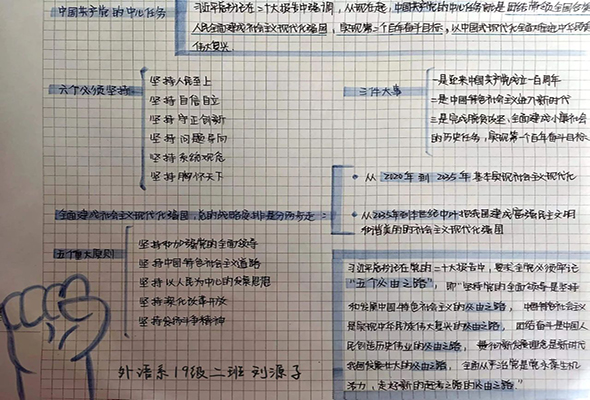 中国共产党的中心任务
习近平指出在二十大报告中强调，从现在起，中国共产党的中心任务就是团结带领全国各族
人民全面建成社会主义现代化强国，实现第二个百年奋斗目标，以中国式现代化全面推进中华民族
伟大复兴。
六个必须坚持
坚持人民至上
坚持自信自立
坚持守正创新
坚持问题导向
坚持系统观念
坚持胸怀天下
三件大事
一是迎来中国共产党成立一百周年
二是中国特色社会主义进入新时代
三是完成脱贫攻坚、全面建成小康社会
的历史任务，实现第一个百年奋斗目标
全面建成社会主义现代化强国，总的战略安排是分两步走：
从2020年到2035年基本实现社会主义现代化
从2035年到本世纪中叶把我国建成富强民主文明
和谐美丽的社会主义现代化强国
五个重大原则
坚持和加强党的全面领导
坚持中国特色社会主义道路
坚持以人民为中心的发展思想
坚持深化改革开放
坚持发扬斗争精神
习近平指出在党的二十大报告中，要求全党必须牢记
“五个必由之路”，即“坚持党的全面领导是坚持
和发展中国特色社会主义的必由之路，中国特色社会主义
是实现中华民族伟大复兴的必由之路，团结奋斗是中国人
民创造历史伟业的必由之路，贯彻新发展理念是新时代
我国发展壮大的必由之路，全面从严治党是党永葆生机
活力、走好新的赶考之路的必由之路。”
外语系19级二班 刘源子